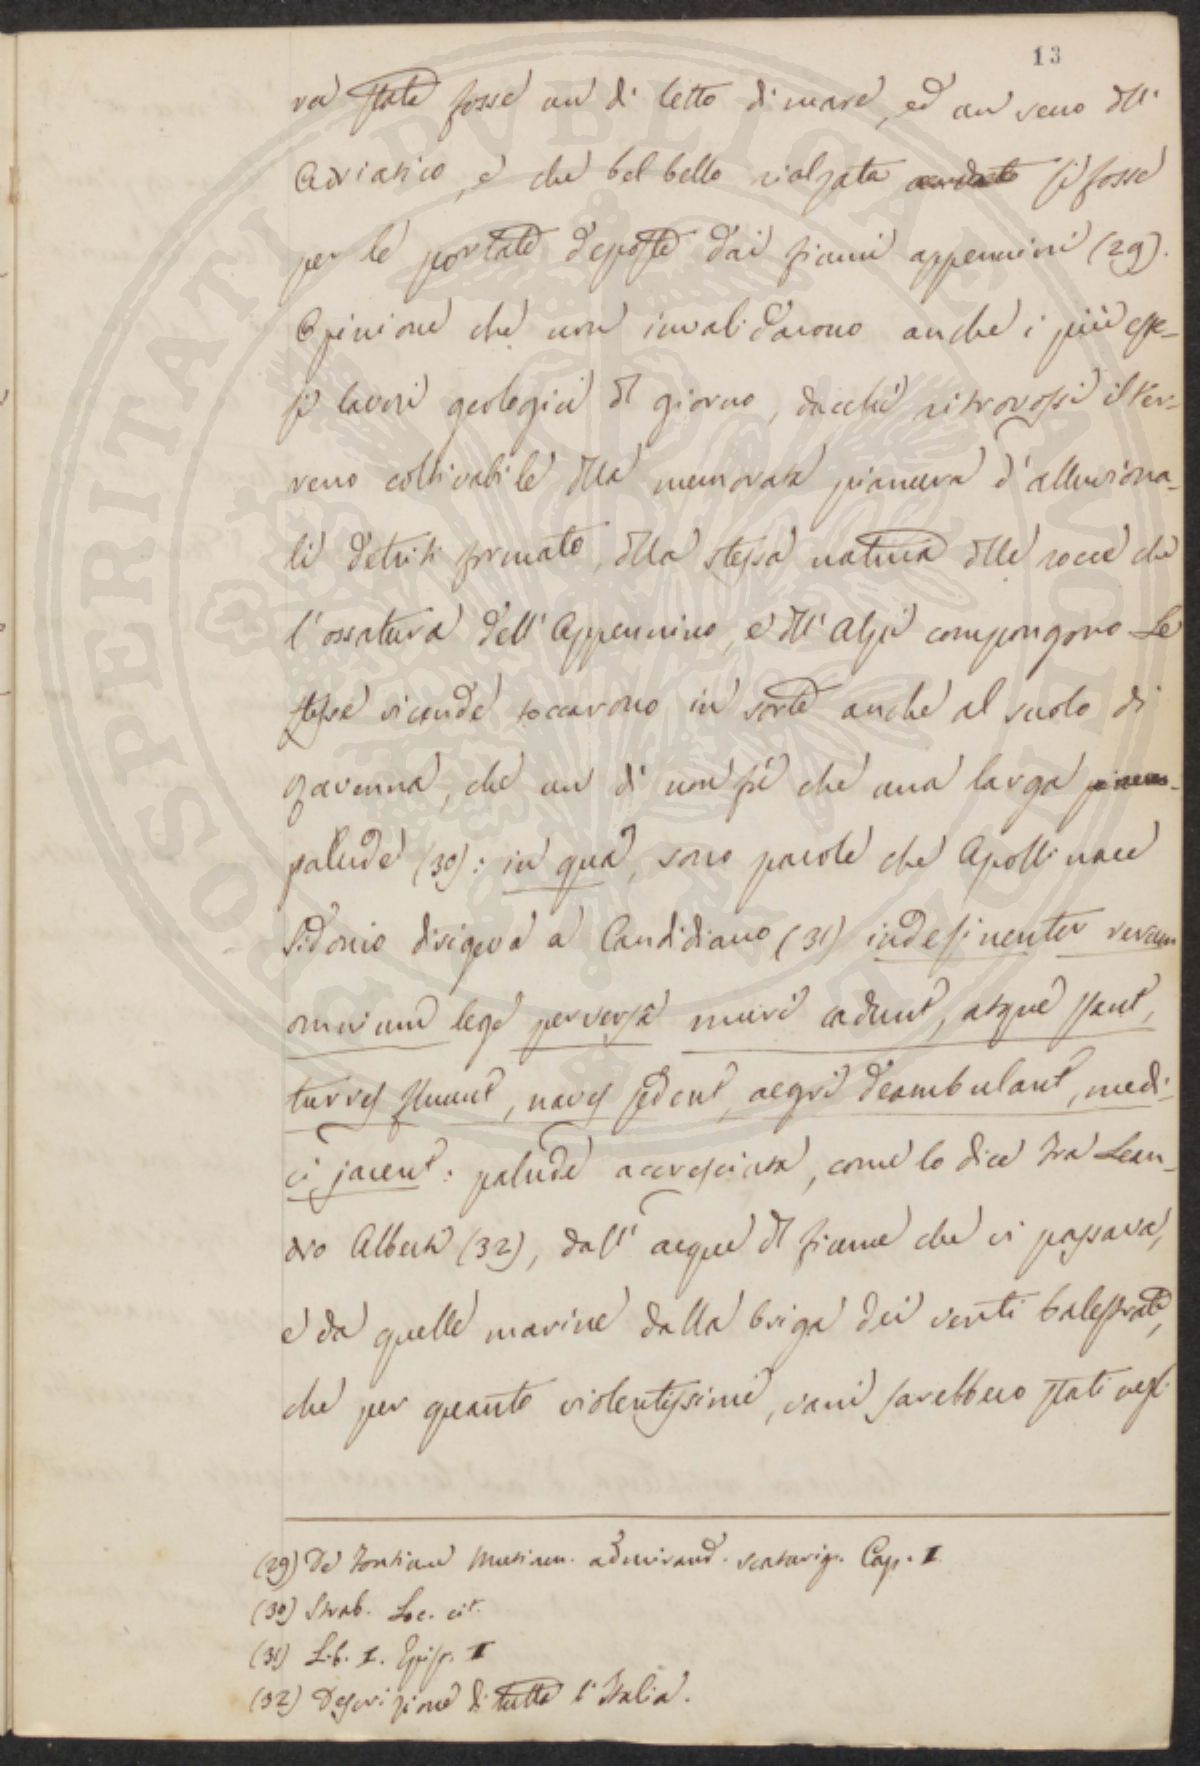 13
ra stata fosse un dì letto di mare, ed un seno dll'
Adriatico, e che bel bello rialzata andata si fosse
per le portate deposte dai fiumi appennini (29).
Opinione che non invalidarono anche i più este-
si lavori geologici dl giorno, dacchè ritrovossi il ter-
reno coltivabile dlla memorata pianura d'alluviona-
li detriti formato, dlla stessa natura dlle rocce che
l'ossatura dell'Appennino, e dll'Alpi compongono Le
stesse vicende toccarono in sorte anche al suolo di
Ravenna, che un dì non fu che una larga
palude (30): in qua, sono parole che Apollinare
Sidonio dirigeva a Candidiano (31) indesinenter rerum
omnium lege perversa muri cadunt, atque stant,
turres fluunt, naves sedent, aegri deambulant, medi-
ci jacent: palude accresciuta, come lo dice Fra Lean-
dro Alberti (32), dall'acque dl fiume che ci passava,
e da quelle marine dalla briga dei venti balestrate,
che per quanto violentissimi, vani sarebbero stati negl'
(29) De Fontium Mutinen. admirand. scaturig. Cap. I
(30) Strab. Loc. cit.
(31) Lib. I. Epist. I
(32) Descrizione di tutta l'Italia.
PROSPERITATI PUBLICAE AUGENDAE